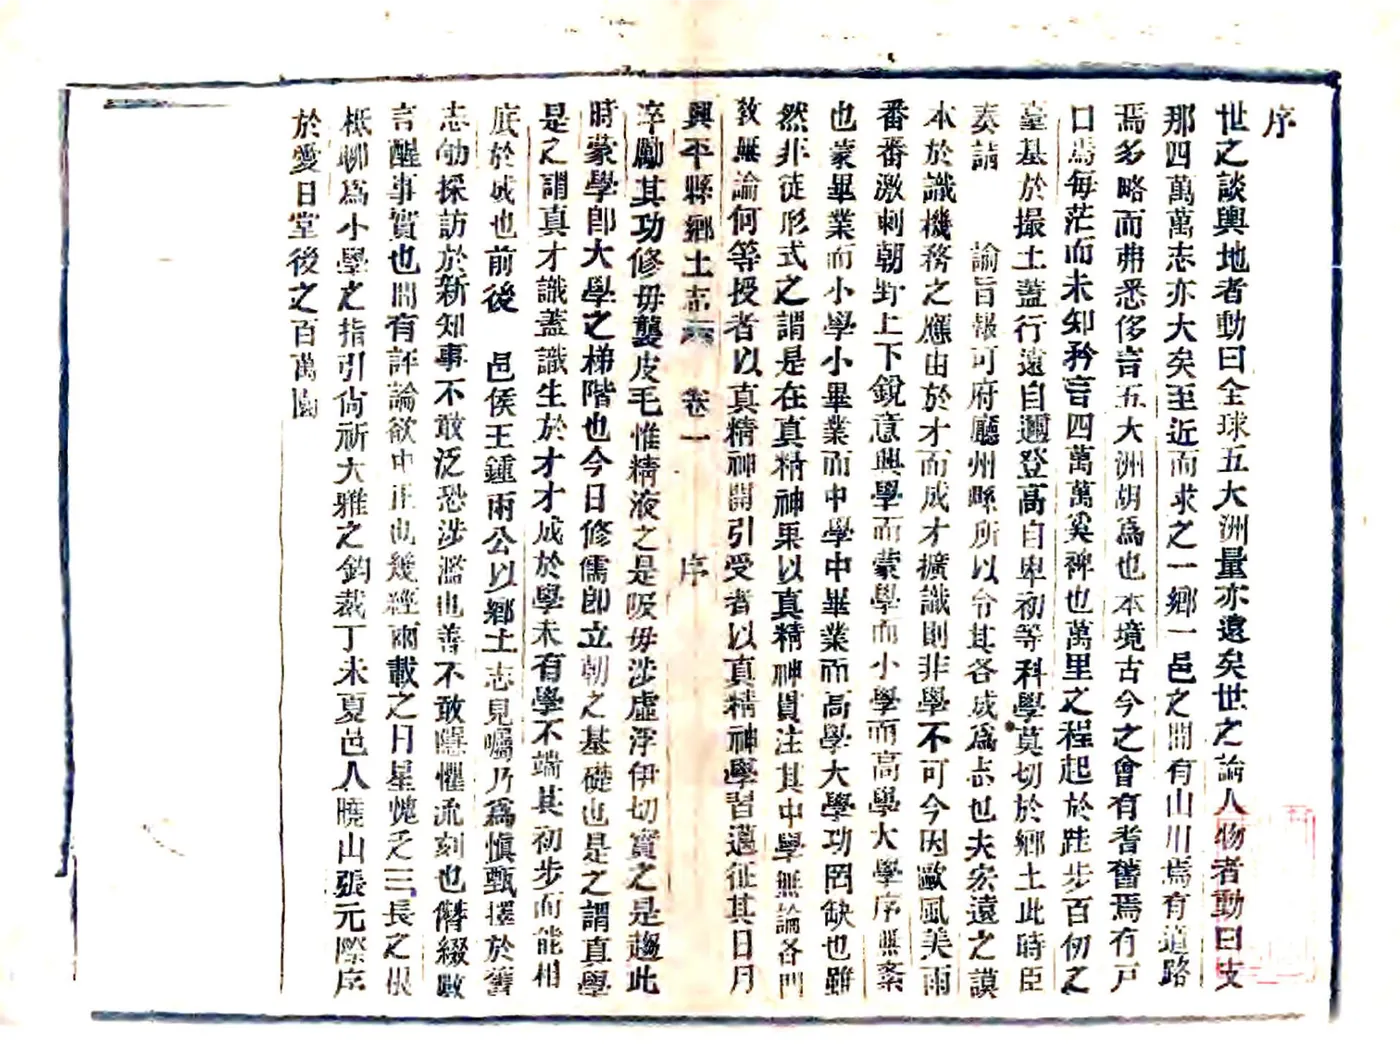 序
世之談輿地者動曰全球五大洲量亦遠矣世之論人物者動曰支
那四萬萬志亦大矣至近而求之一鄉一邑之間有山川焉有道路
焉多略而弗悉侈言五大洲胡為也本境古今之會有耆舊焉有戸
口焉每茫而未知矜言四萬萬奚裨也萬里之程起於跬步百仞之
臺基於撮土蓋行遠自邇登高自卑初等科學莫切於鄉土此時臣
奏請 諭旨報可府廳州縣所以令其各成為志也夫宏遠之謨
本於識機務之應由於才而成才擴識則非學不可今因歐風美雨
番番激刺朝野上下銳意興學而蒙學而小學而高學大學序無紊
也蒙畢業而小學小畢業而中學中畢業而高學大學功罔缺也雖
然非徒形式之謂是在真精神果以真精神貫注其中學無論各門
敎無論何等授者以真精神開引受者以真精神學習邁征其日月
興平縣鄉土志 卷一 序
淬勵其功修毋襲皮毛惟精液之是吸毋涉虛浮伊切實之是趨此
時蒙學卽大學之梯階也今日修儒卽立朝之基礎也是之謂真學
是之謂真才識蓋識生於才才成於學未有學不端其初步而能相
底於成也前後 邑侯王鍾兩公以鄉土志見囑乃為慎甄擇於舊
志劬採訪於新知事不敢泛恐涉濫也善不敢隱懼流刻也僭綴數
言醒事實也間有評論欲中正也幾經兩載之日星愧乏三長之根
柢聊為小學之指引尙祈大雅之鈞裁丁未夏邑人曉山張元際序
於愛日堂後之百萬園